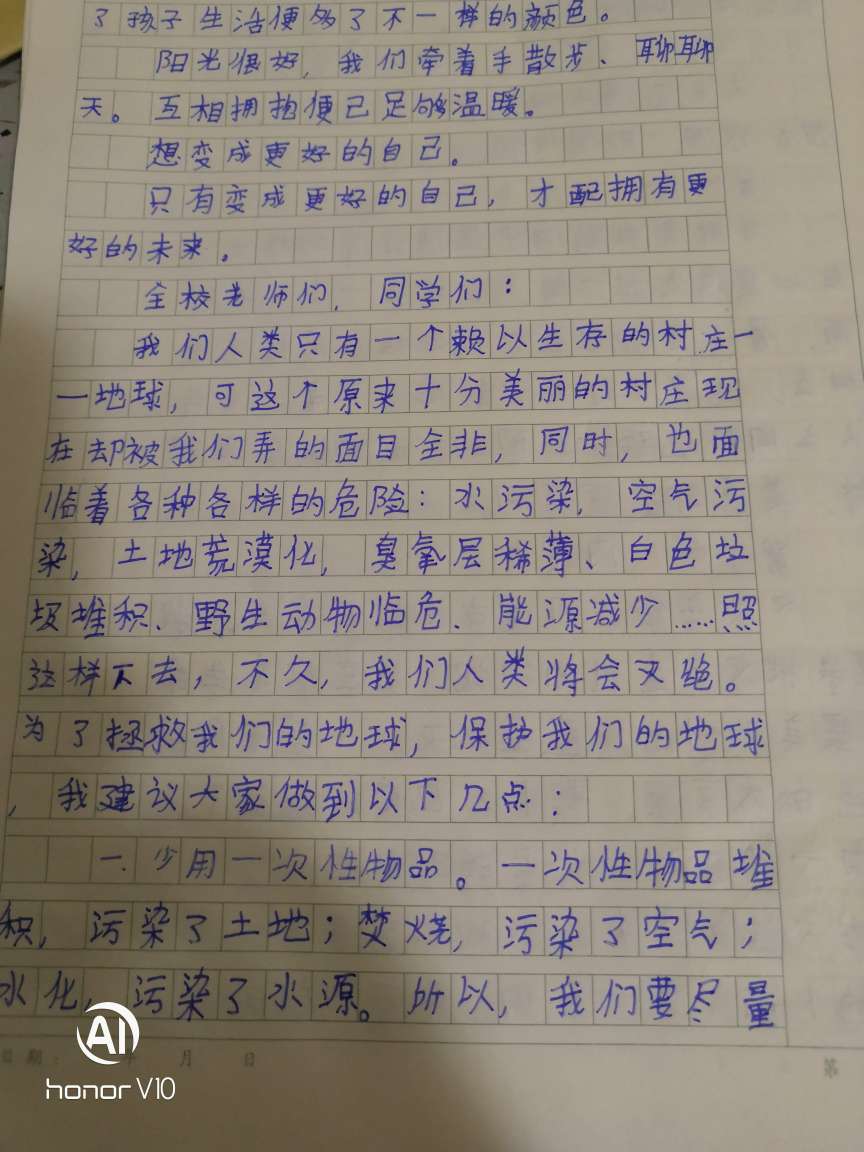 了孩子生活便多了不一样的颜色。
阳光很好，我们牵着手散步、聊聊
天。互相拥抱便已足够温暖。
想变成更好的自己。
只有变成更好的自己，才配拥有更
好的未来。
全校老师们、同学们：
我们人类只有一个赖以生存的村庄一
一地球，可这个原来十分美丽的村庄现
在却被我们弄的面目全非，同时，也面
临着各种各样的危险：水污染、空气污
染，土地荒漠化，臭氧层稀薄、白色垃
圾堆积、野生动物临危、能源减少……照
这样下去，不久，我们人类将会灭绝。
为了拯救我们的地球，保护我们的地球
，我建议大家做到以下几点：
一、少用一次性物品。一次性物品堆
积，污染了土地；焚烧，污染了空气；
水化，污染了水源。所以，我们要尽量
日期： 年 月 日
第
AI
honor V10